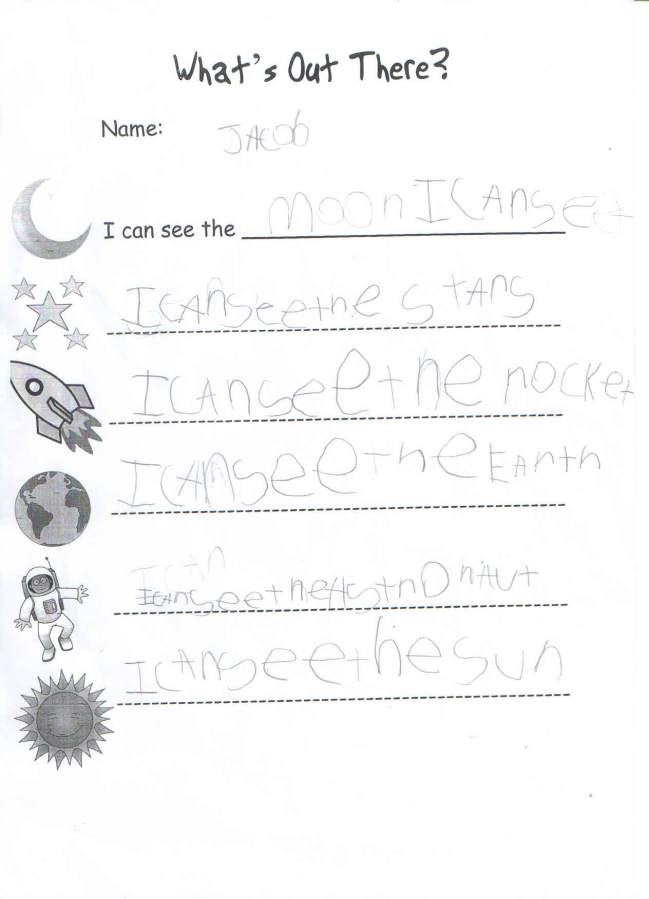 What's Out There?
Name: JACOb
I can see the moon I CAn See
I CAnSeethe STArS
I CAnSeethe rOCKet
I CAnSeethe EArth
I CAn
ICAnSeetheAStrOnAut
I CAnSeethe Sun